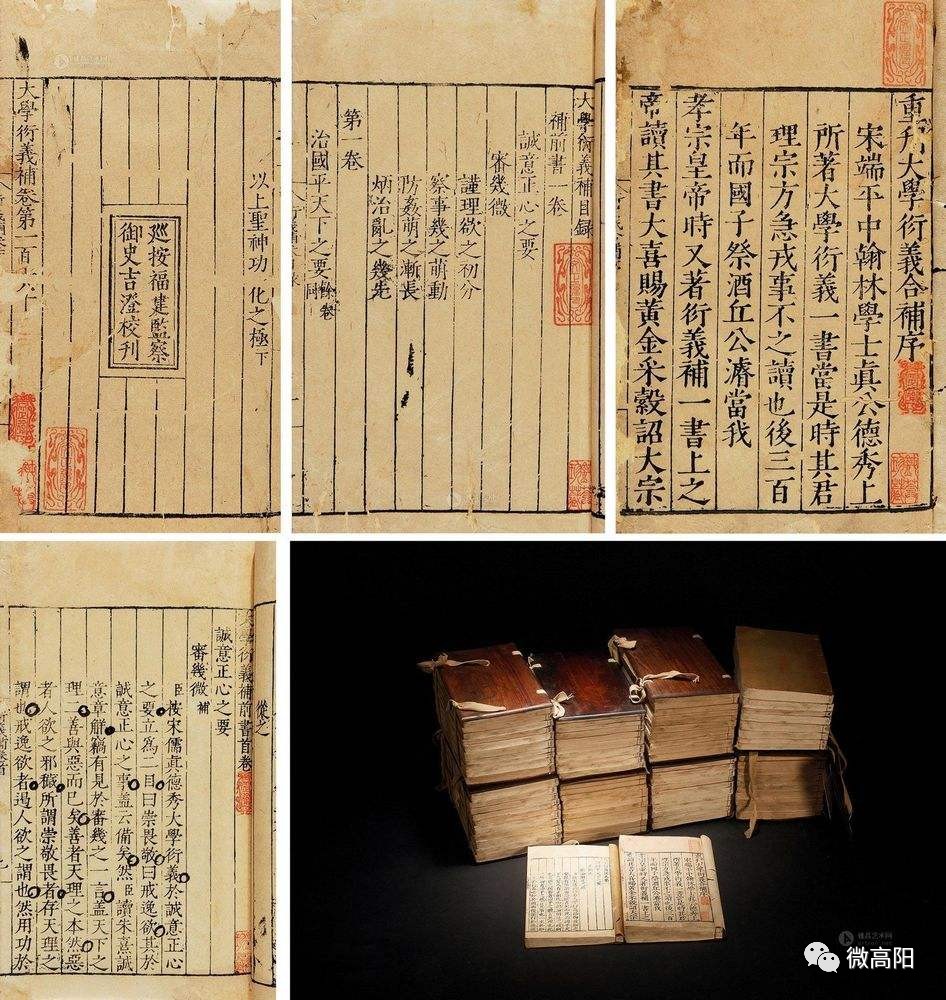 以上聖神功化之極下
廵按福建監察
御史吉澄校刊
大學衍義補卷第一百六十
大學衍義補目錄
補前書一卷
誠意正心之要
審幾微
謹理欲之初分
察事幾之萌動
防姦萌之漸長
炳治亂之幾先
第一卷
治國平天下之要餘卷同
重刋大學衍義合補序
宋端平中翰林學士眞公德秀上
所著大學衍義一書當是時其君
理宗方急戎事不之讀也後三百
年而國子祭酒丘公濬當我
孝宗皇帝時又著衍義補一書上之
帝讀其書大喜賜黃金采縠詔大宗
大學衍義補前書首卷
誠意正心之要
審幾微補
臣按宋儒眞德秀大學衍義於誠意正心
之要立爲二目曰崇畏敬曰戒逸欲其於
誠意正心之事盖云備矣然臣讀朱熹誠
意章觧竊有見於審幾之一言盖天下之
理二善與惡而已矣善者天理之本然惡
者人欲之邪穢所謂崇敬畏者存天理之
謂也戒逸欲者遏人欲之謂也然用功於
微高阳